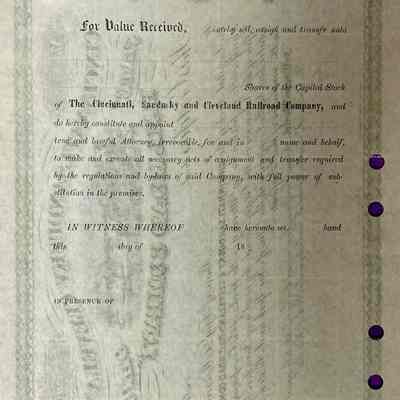 For Value Received, hereby sell, assign and transfer unto
Shares of the Capital Stock
of The Cincinnati, Sandusky and Cleveland Railroad Company, and
do hereby constitute and appoint
true and lawful Attorney, irrevocable, for and in name and behalf,
to make and execute all necessary acts of assignment and transfer required
by the regulations and by-laws of said Company, with full power of sub-
stitution in the premises.
IN WITNESS WHEREOF have hereunto set hand
this day of 18
IN PRESENCE OF